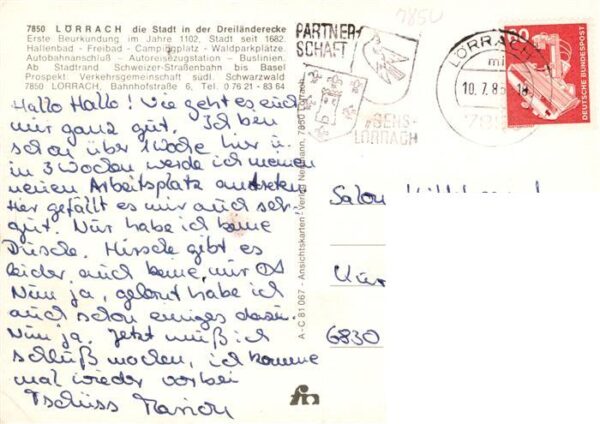 7850 LÖRRACH die Stadt in der Dreiländerecke
Erste Beurkundung im Jahre 1102, Stadt seit 1682.
Hallenbad - Freibad - Campingplatz - Waldparkplätze.
Autobahnanschluß - Autoreisezugstation - Buslinien.
Ab Stadtrand Schweizer-Straßenbahn bis Basel
Prospekt Verkehrsgemeinschaft südl. Schwarzwald
7850 LÖRRACH, Bahnhofstraße 6, Tel. 0 76 21 - 83 64
Hallo Hallo! Wie geht es euch
mir ganz gut. Ich bin
schon über 1 Woche hier u.
in 3 Wochen werde ich meinen
neuen Arbeitsplatz antreten
Hier gefällt es mir auch sehr
gut. Nur habe ich keine
Dusche. Hirsche gibt es
leider auch keine, nur
Nun ja, gelernt habe ich
auch schon einiges dazu.
Nun ja. Jetzt muß ich
schluß machen, ich komme
mal wieder vorbei
Tschüss Marion
A-C 81067 - Ansichtskarten-Verlag Neumann, 7850 Lörrach
7850
PARTNER-
SCHAFT
SENS-
LÖRRACH
LÖRRACH 1
10.7.85
DEUTSCHE BUNDESPOST
Salon
6830